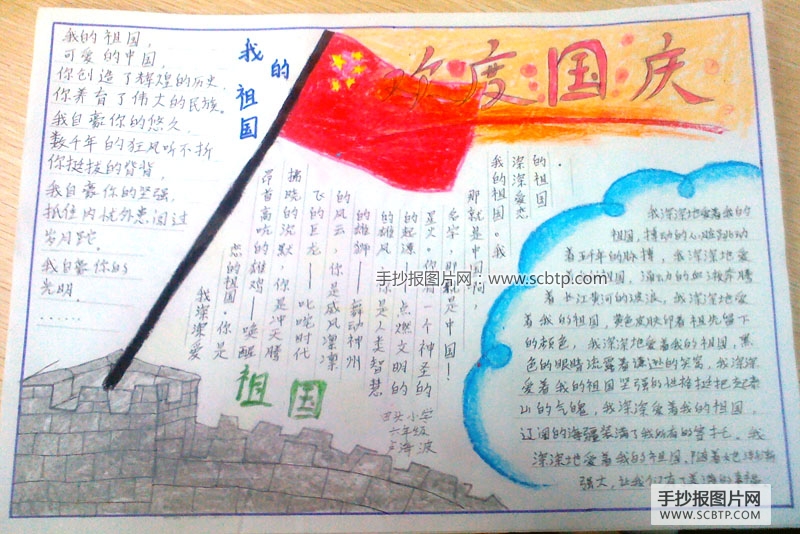 欢度国庆
我的祖国
我的祖国，
可爱的中国，
你创造了辉煌的历史，
你养育了伟大的民族。
我自豪你的悠久，
数千年的狂风吹不折
你挺拔的脊背，
我自豪你的坚强，
抓住内忧外患闯过
岁月
我自豪你的
光明，
……
我深深爱
恋的祖国。你是
昂首高吭的雄鸡——唤醒
拂晓的沉默，你是冲天腾
飞的巨龙——叱咤时代
的风云，你是威风凛凛
的雄狮——舞动神州
的雄风，你是人类智慧
的起源——点燃文明的
星火。你有一个神圣的
名字，那就是中国！
那就是中国啊，
我的祖国。我
深深爱恋
的祖国。
祖国
六年级
海波
我深深地爱着我的
祖国，搏动的心脏跳动
着五千年的脉搏，我深深地爱
着我的祖国，涌动的血液奔腾
着长江黄河的波浪，我深深地爱
着我的祖国，黄色皮肤印着祖先留下
的颜色，我深深地爱着我的祖国，黑
色的眼睛流露着谦逊的笑容，我深深
爱着我的祖国坚强的性格挺拔起着
山的气魄，我深深爱着我的祖国，
辽阔的海疆装满了我所有的寄托。我
深深地爱着我的祖国，
强大，让我们有了
手抄报图片网：www.scbtp.com
手抄报图片网
WWW.SCBTP.COM